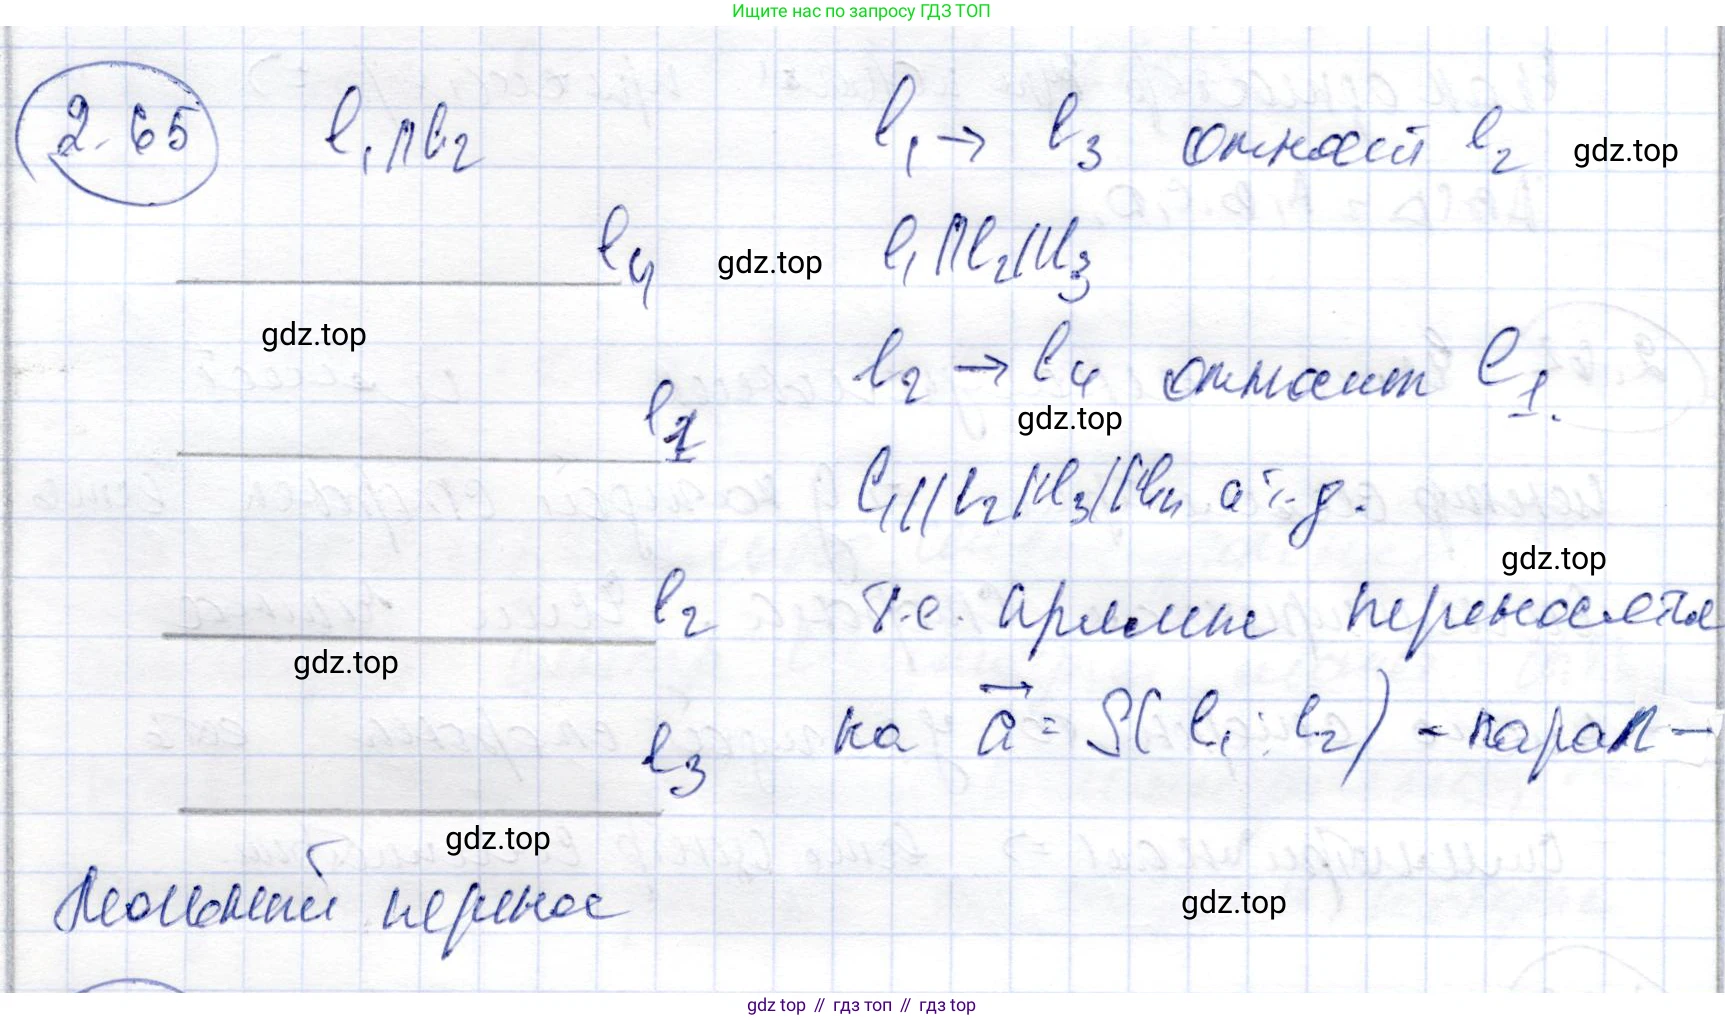 Ищите нас по запросу ГДЗ ТОП
2.65 l₁ ∥ l₂ l₁ → l₃ относит l₂ gdz.top
l₄ gdz.top l₁ ∥ l₂ ∥ l₃
gdz.top
l₂ → l₄ относит l₁.
l₁ gdz.top
l₁ ∥ l₂ ∥ l₃ ∥ l₄ и т.д.
gdz.top
l₂ т.е. прямые переносятся
gdz.top
на a⃗ = S(l₁; l₂) - парал-
l₃
gdz.top
лельный перенос gdz.top
gdz top // гдз топ // гдз top